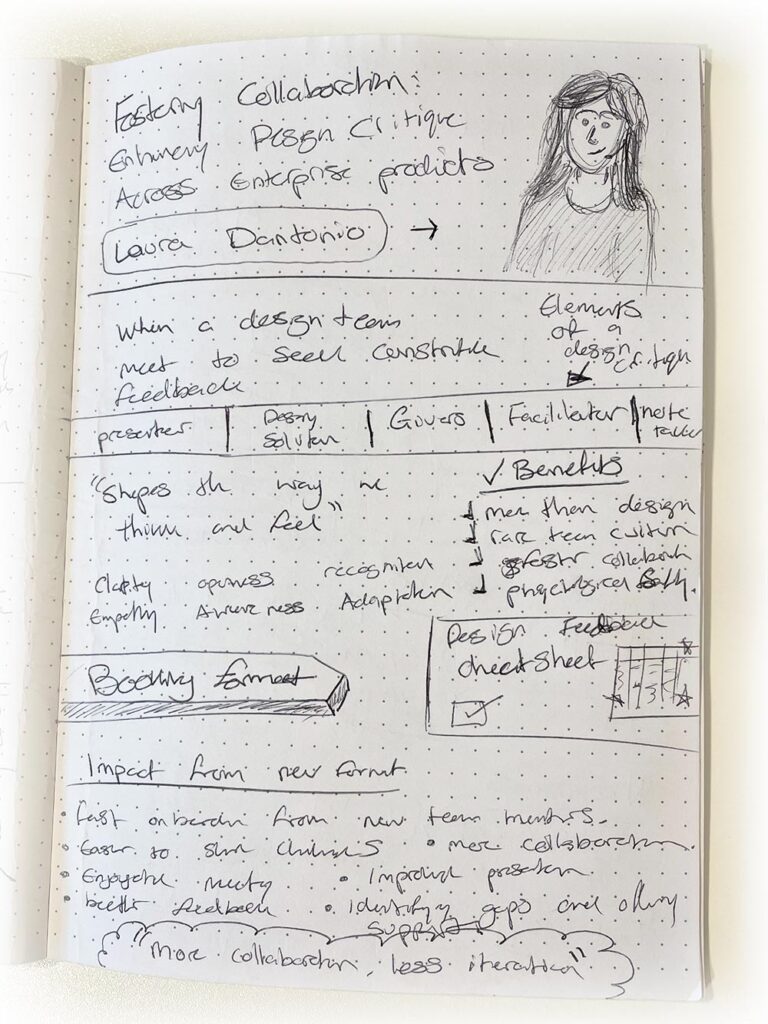 Fostering Collaboration:
Enhancing Design Critique
Across Enterprise products
Laura Dantonio
When a design team
meet to seek constructive
feedback
Elements
of a
design
critique
presenter
Design
Solution
Givers
Facilitator
note
taker
"Shapes the way we
think and feel"
Clarity openness recognition
Empathy Awareness Adaptation
Benefits
more than design
team culture
greater collaboration
phycological Safety.
Design Feedback
cheatsheet
Booking format
Impact from new format
Fast onboardin from new team members.
Easier to challenges
more collaboration
Enjoyable meeting
Improved presentation
better feedback
Identifying gaps and offering
support
"More collaboration, less iteration"